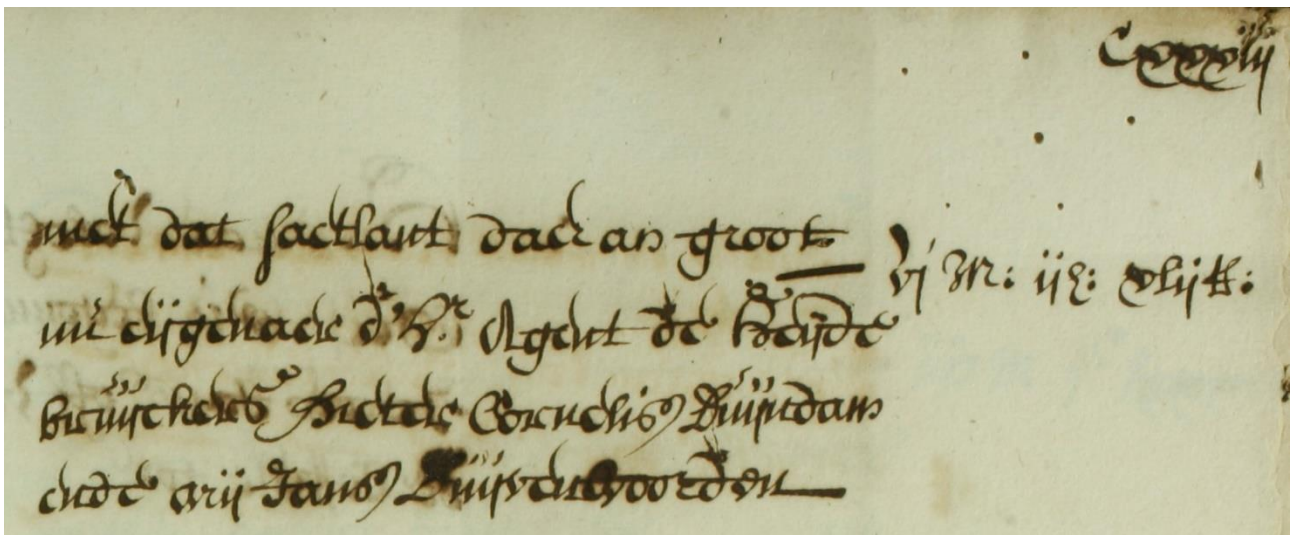 Cxxxiij
met dat sactlant daer an groot
vj M: ij H: xlij R:
nu eijgenaer dHr. Agent de Heijde
bruijckers Pieter Cornelisz Duijndam
ende arij Jansz Duijvenvoorden